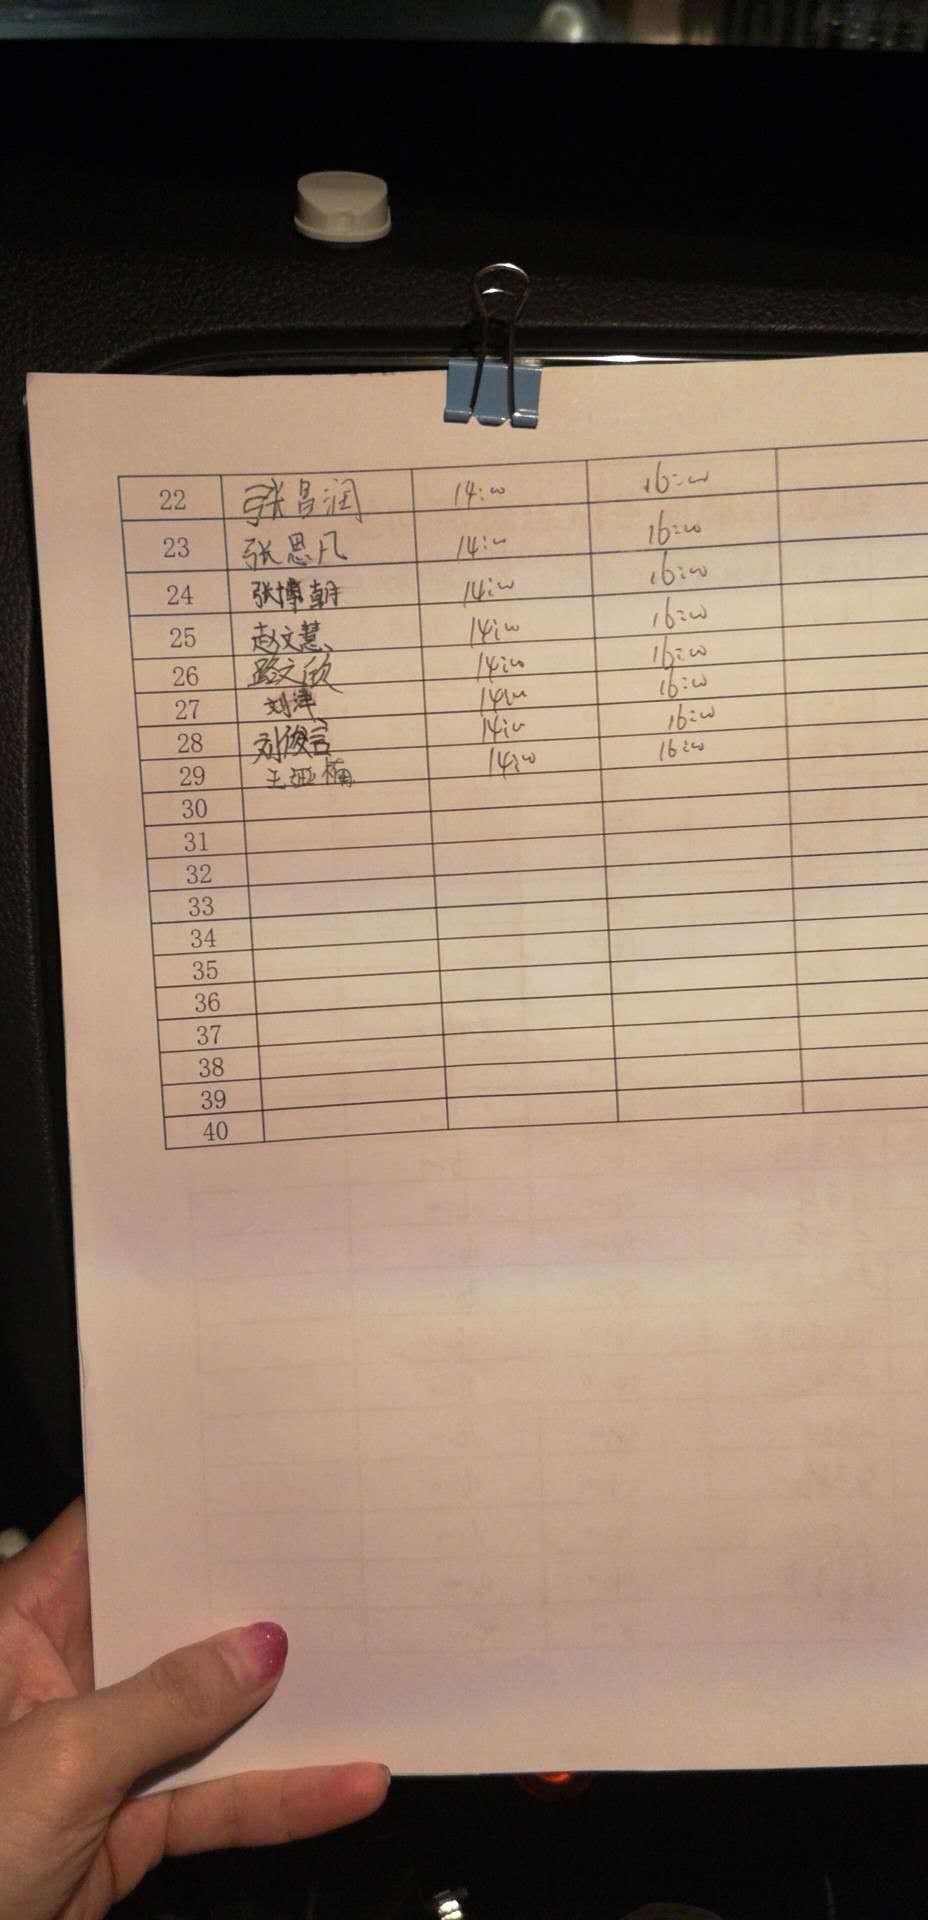 22 张昌润 14:00 16:00
23 张恩凡 14:00 16:00
24 张博朝 14:00 16:00
25 赵文慧 14:00 16:00
26 路文欣 14:00 16:00
27 刘洋 14:00 16:00
28 刘俊言 14:00 16:00
29 王亚楠 14:00 16:00
30
31
32
33
34
35
36
37
38
39
40